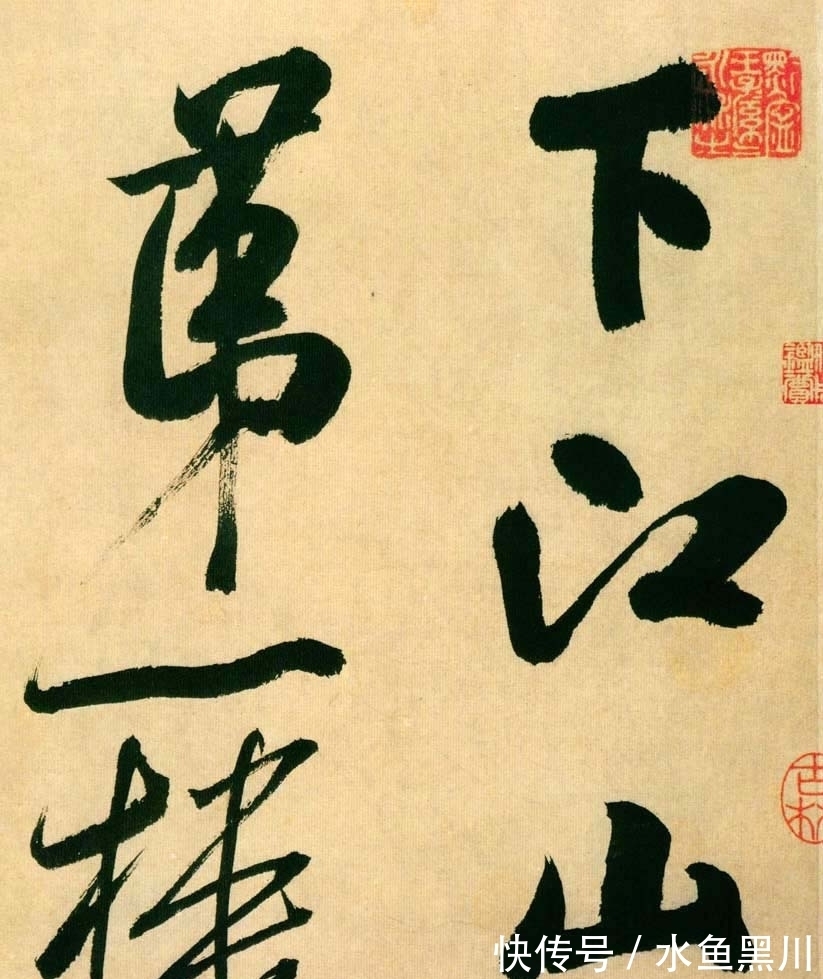 下江山
第一樓
快传号 / 水鱼黑川